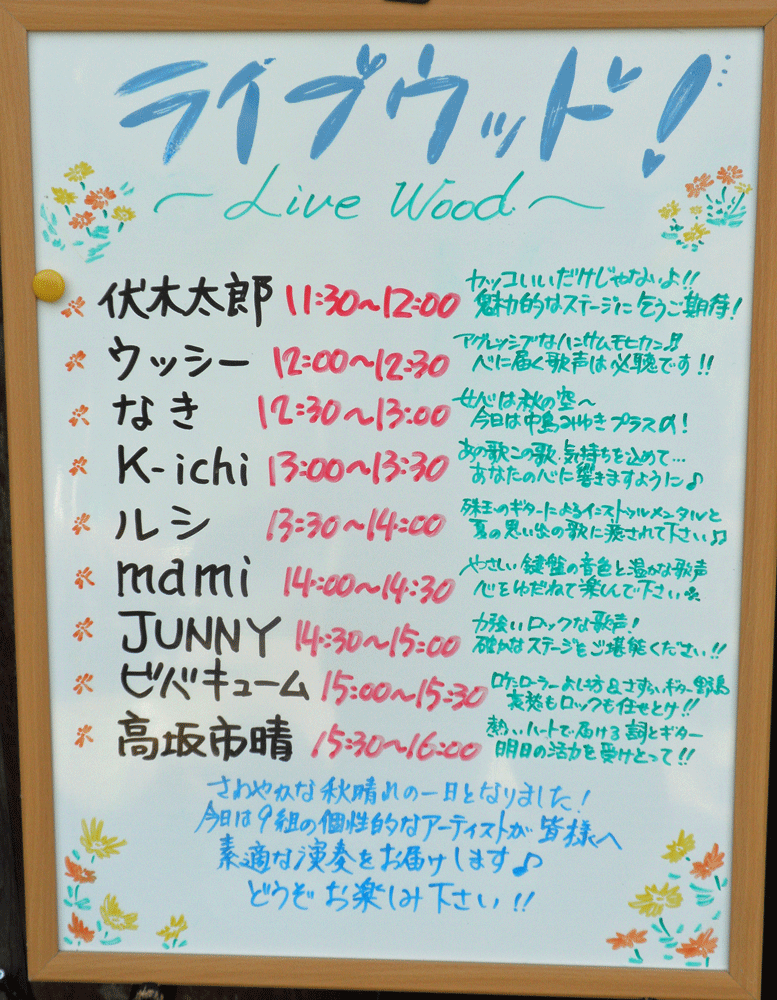 ライブウッド!
～Live Wood～
伏木太郎 11:30～12:00 カッコいいだけじゃないよ!!
魅力的なステージに乞うご期待!
ウッシー 12:00～12:30 アグレッシブなハンサムモヒカン♫
心に届く歌声は必聴です!!
なき 12:30～13:00 女心は秋の空～
今日は中島みゆきプラスα!
K-ichi 13:00～13:30 あの歌この歌気持ちを込めて…
あなたの心に響きますように♪
ルシ 13:30～14:00 珠玉のギターによるインストゥルメンタルと
夏の思い出の歌に癒されて下さい♫
mami 14:00～14:30 やさしい鍵盤の音色と温かな歌声
心をゆだねて楽しんで下さい
JUNNY 14:30～15:00 力強いロックな歌声!
確かなステージをご堪能ください!!
ビバキューム 15:00～15:30 ロケンローラーよし坊&さすらいギター野島
哀愁もロックも任せとけ!!
高坂市晴 15:30～16:00 熱いハートで届ける詞とギター
明日の活力を受けとって!!
さわやかな秋晴れの一日となりました!
今日は9組の個性的なアーティストが皆様へ
素適な演奏をお届けします♪
どうぞお楽しみ下さい!!